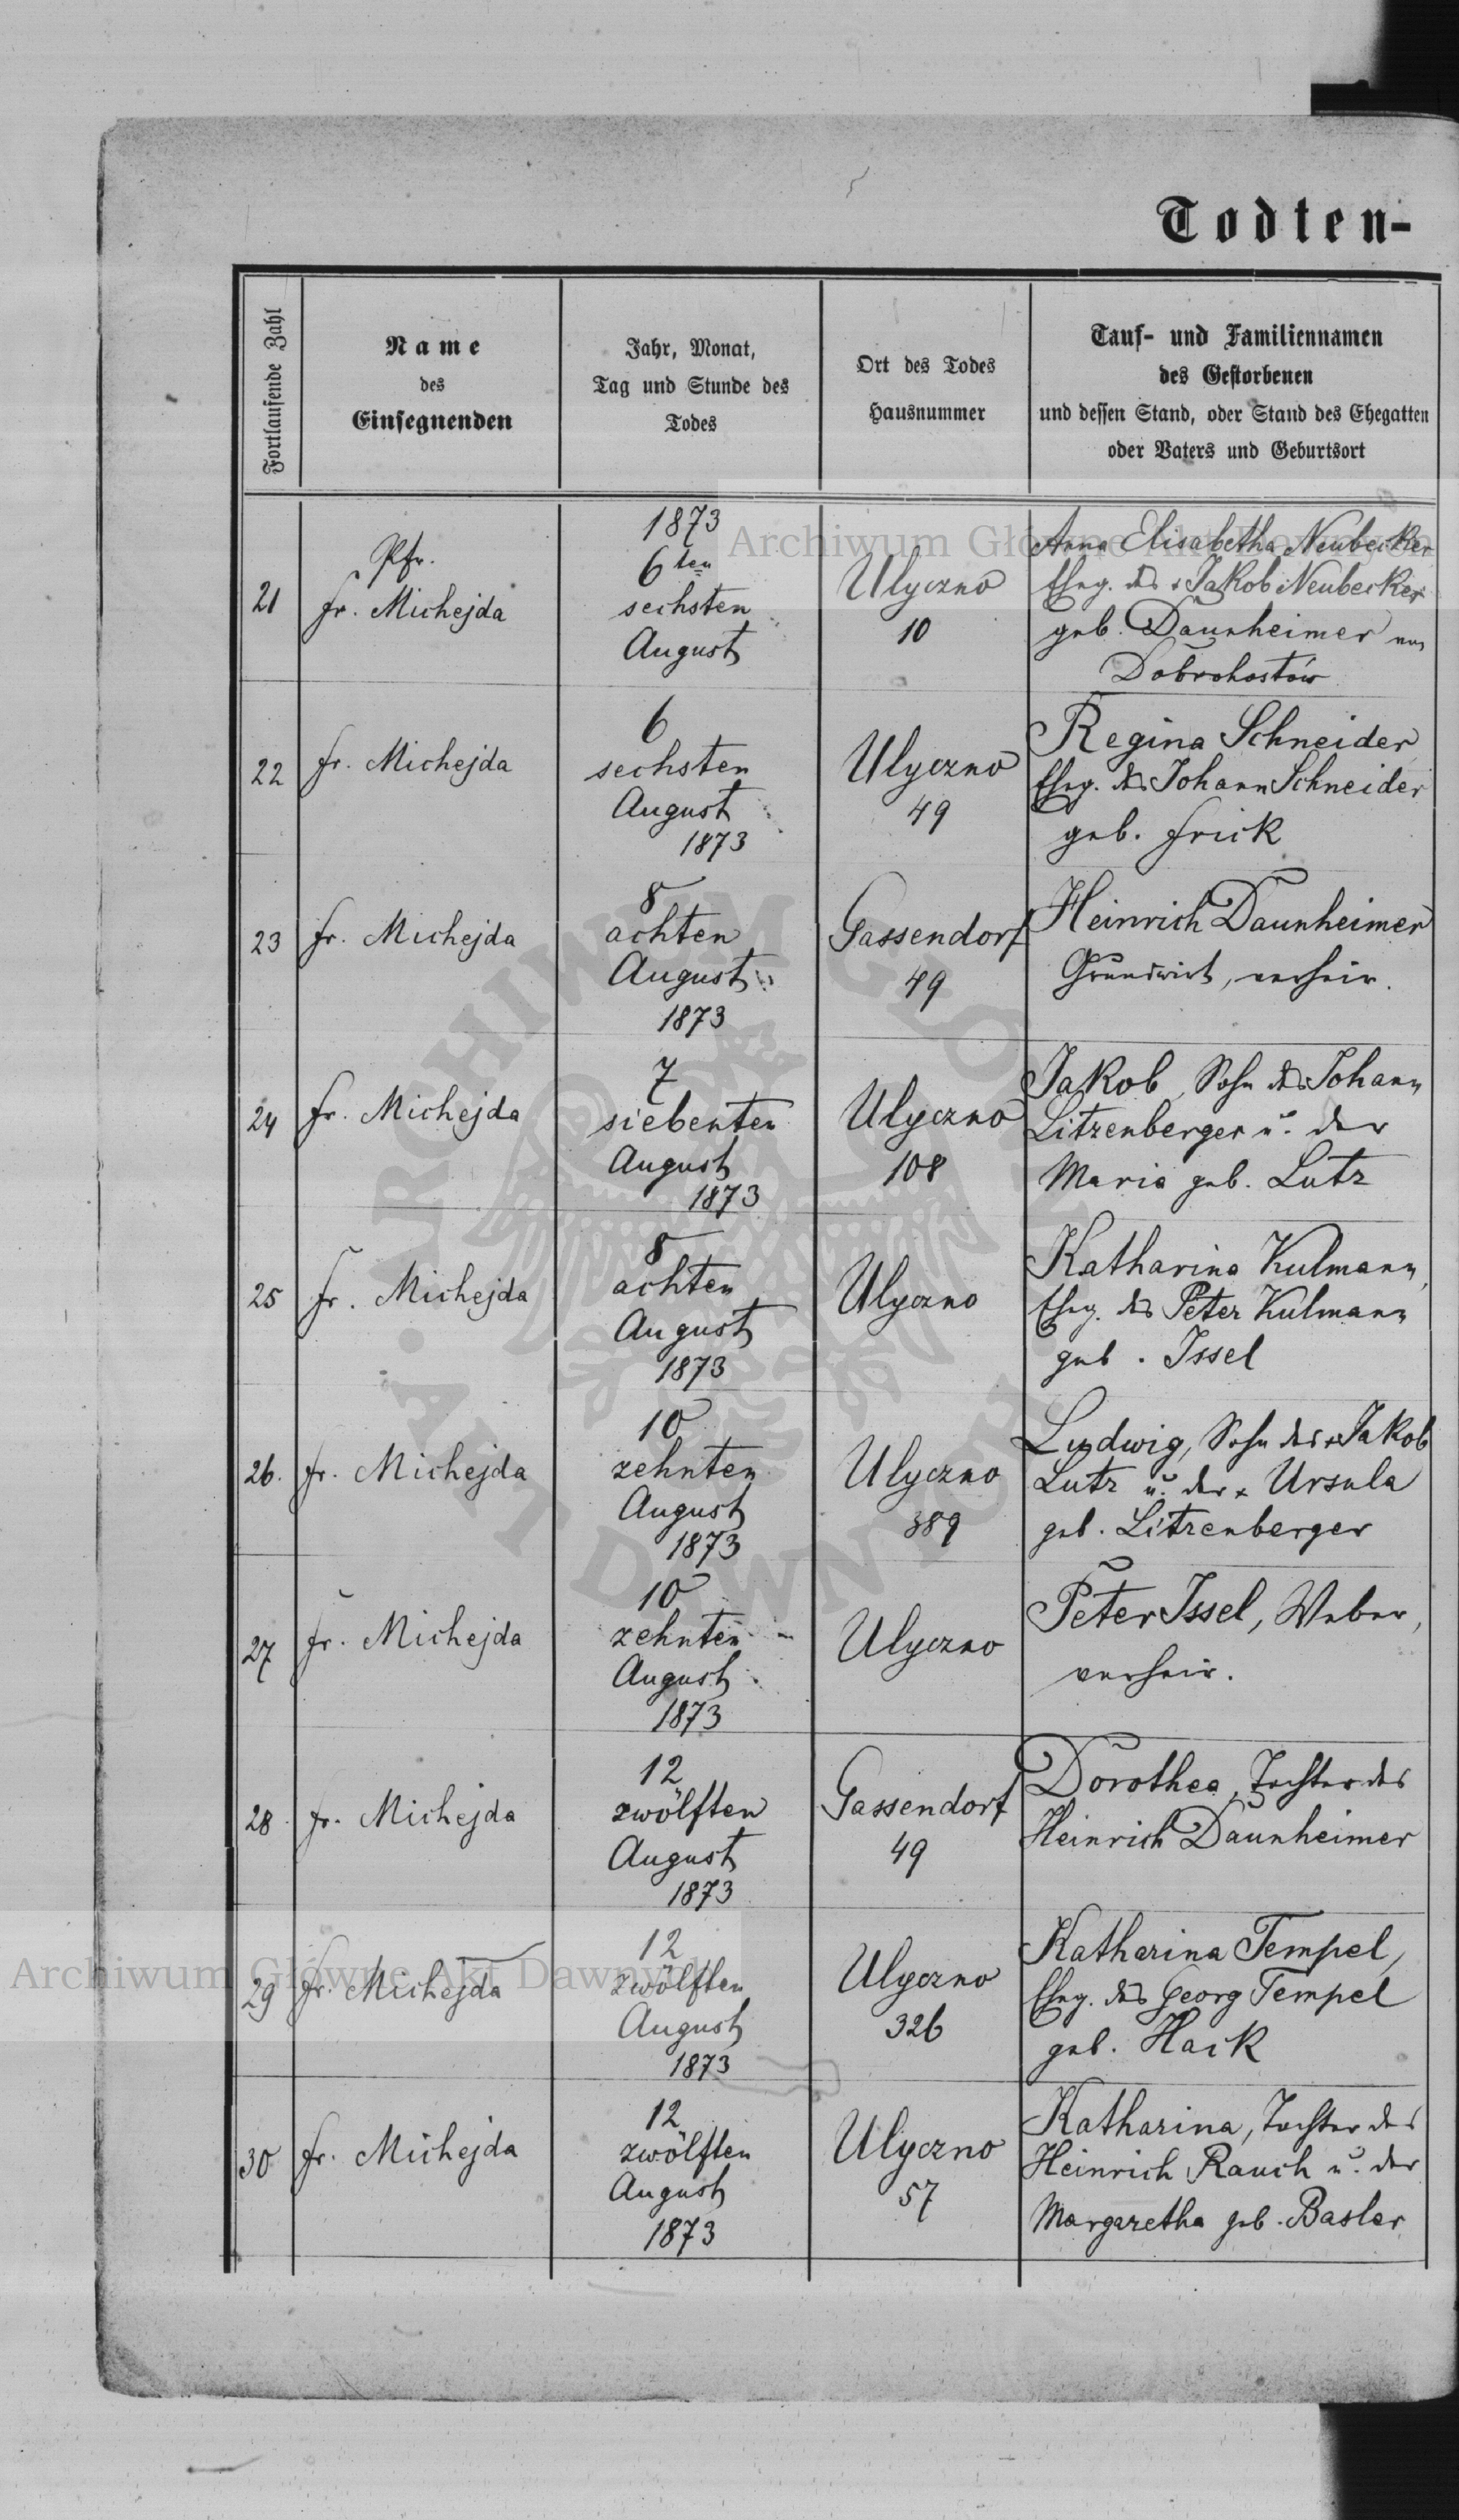 Todten-
Fortlaufende Zahl
Name
des
Einsegnenden
Jahr, Monat,
Tag und Stunde des
Todes
Ort des Todes
Hausnummer
Tauf- und Familiennamen
des Gestorbenen
und dessen Stand, oder Stand des Ehegatten
oder Vaters und Geburtsort
21
Pfr.
Fr. Michejda
1873
6ten
sechsten
August
Ulyczno
10
Anna Elisabetha Neubecker
Eheg. des + Jakob Neubecker
geb. Daunheimer aus
Dobrohostów
22
Fr. Michejda
6
sechsten
August
1873
Ulyczno
49
Regina Schneider
Eheg. des Johann Schneider
geb. Frick
23
Fr. Michejda
8
achten
August
1873
Gassendorf
49
Heinrich Daunheimer
Grundwirt, verheir.
24
Fr. Michejda
7
siebenten
August
1873
Ulyczno
108
Jakob, Sohn des Johann
Litzenberger u. der
Maria geb. Lutz
25
Fr. Michejda
8
achten
August
1873
Ulyczno
Katharina Kulmann,
Eheg. des Peter Kulmann
geb. Issel
26.
Fr. Michejda
10
zehnten
August
1873
Ulyczno
389
Ludwig, Sohn des + Jakob
Lutz u. der + Ursula
geb. Litzenberger
27
Fr. Michejda
10
zehnten
August
1873
Ulyczno
Peter Issel, Weber,
verheir.
28
Fr. Michejda
12
zwölften
August
1873
Gassendorf
49
Dorothea, Tochter des
Heinrich Daunheimer
29
Fr. Michejda
12
zwölften
August
1873
Ulyczno
326
Katharina Tempel,
Eheg. des Georg Tempel
geb. Hack
30
Fr. Michejda
12
zwölften
August
1873
Ulyczno
57
Katharina, Tochter des
Heinrich Rauch u. der
Margaretha geb. Basler
Archiwum Główne Akt Dawnych
Archiwum Główne Akt Dawnych
ARCHIWUM GŁÓWNE
AKT DAWNYCH